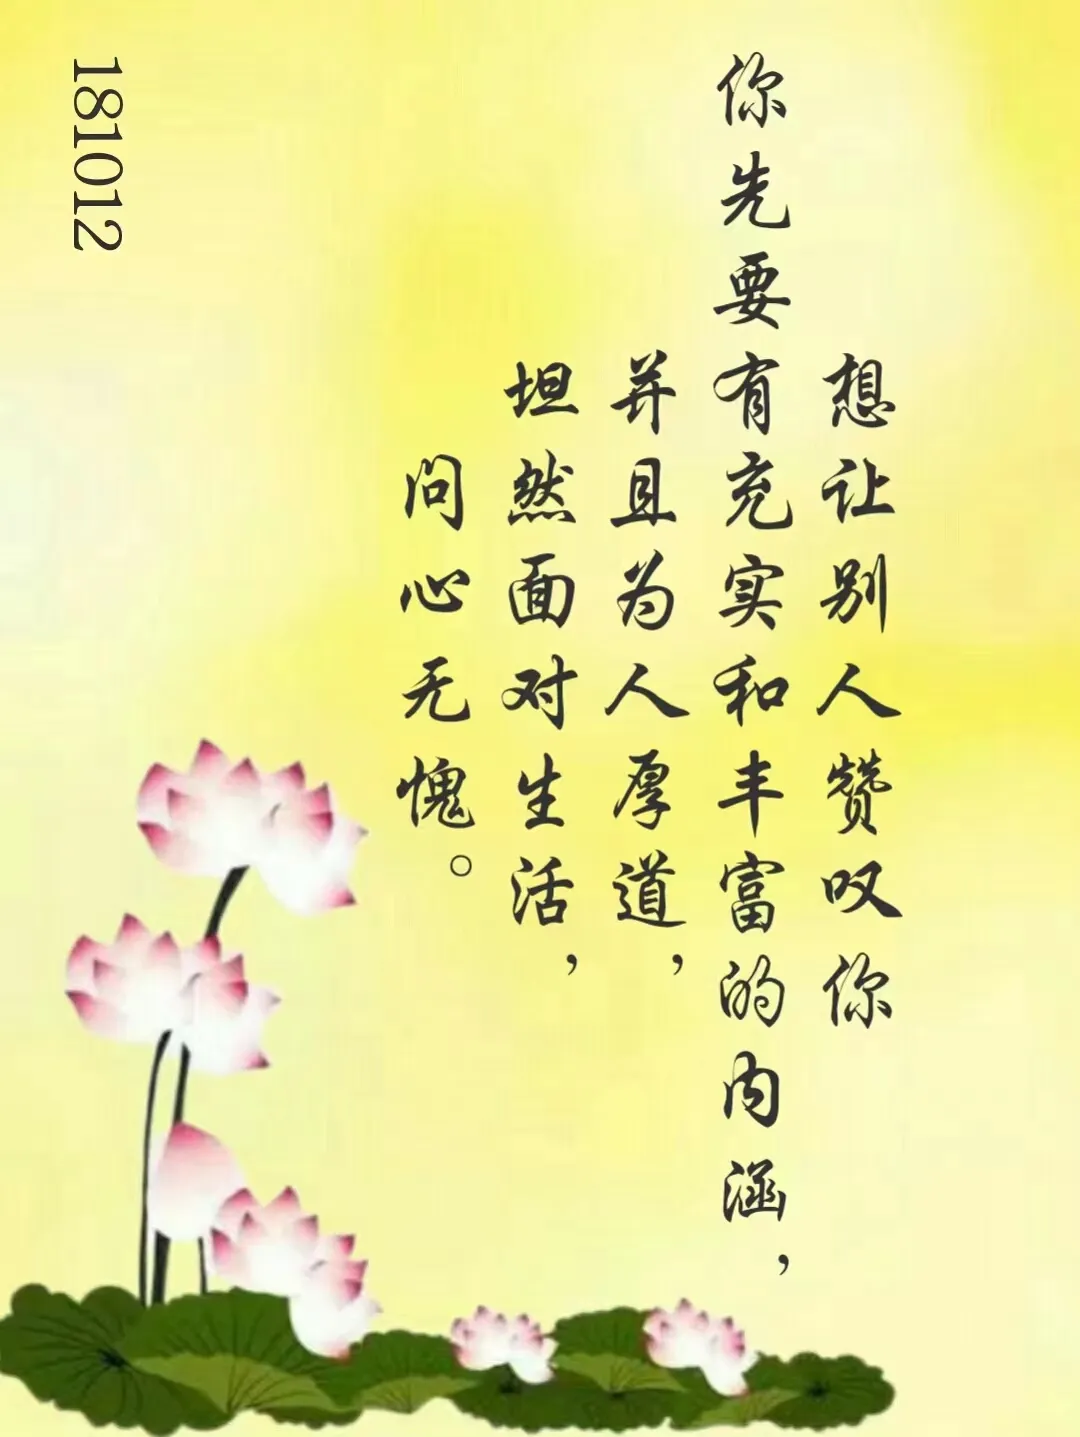 想让别人赞叹你
你先要有充实和丰富的内涵，
并且为人厚道，
坦然面对生活，
问心无愧。
181012